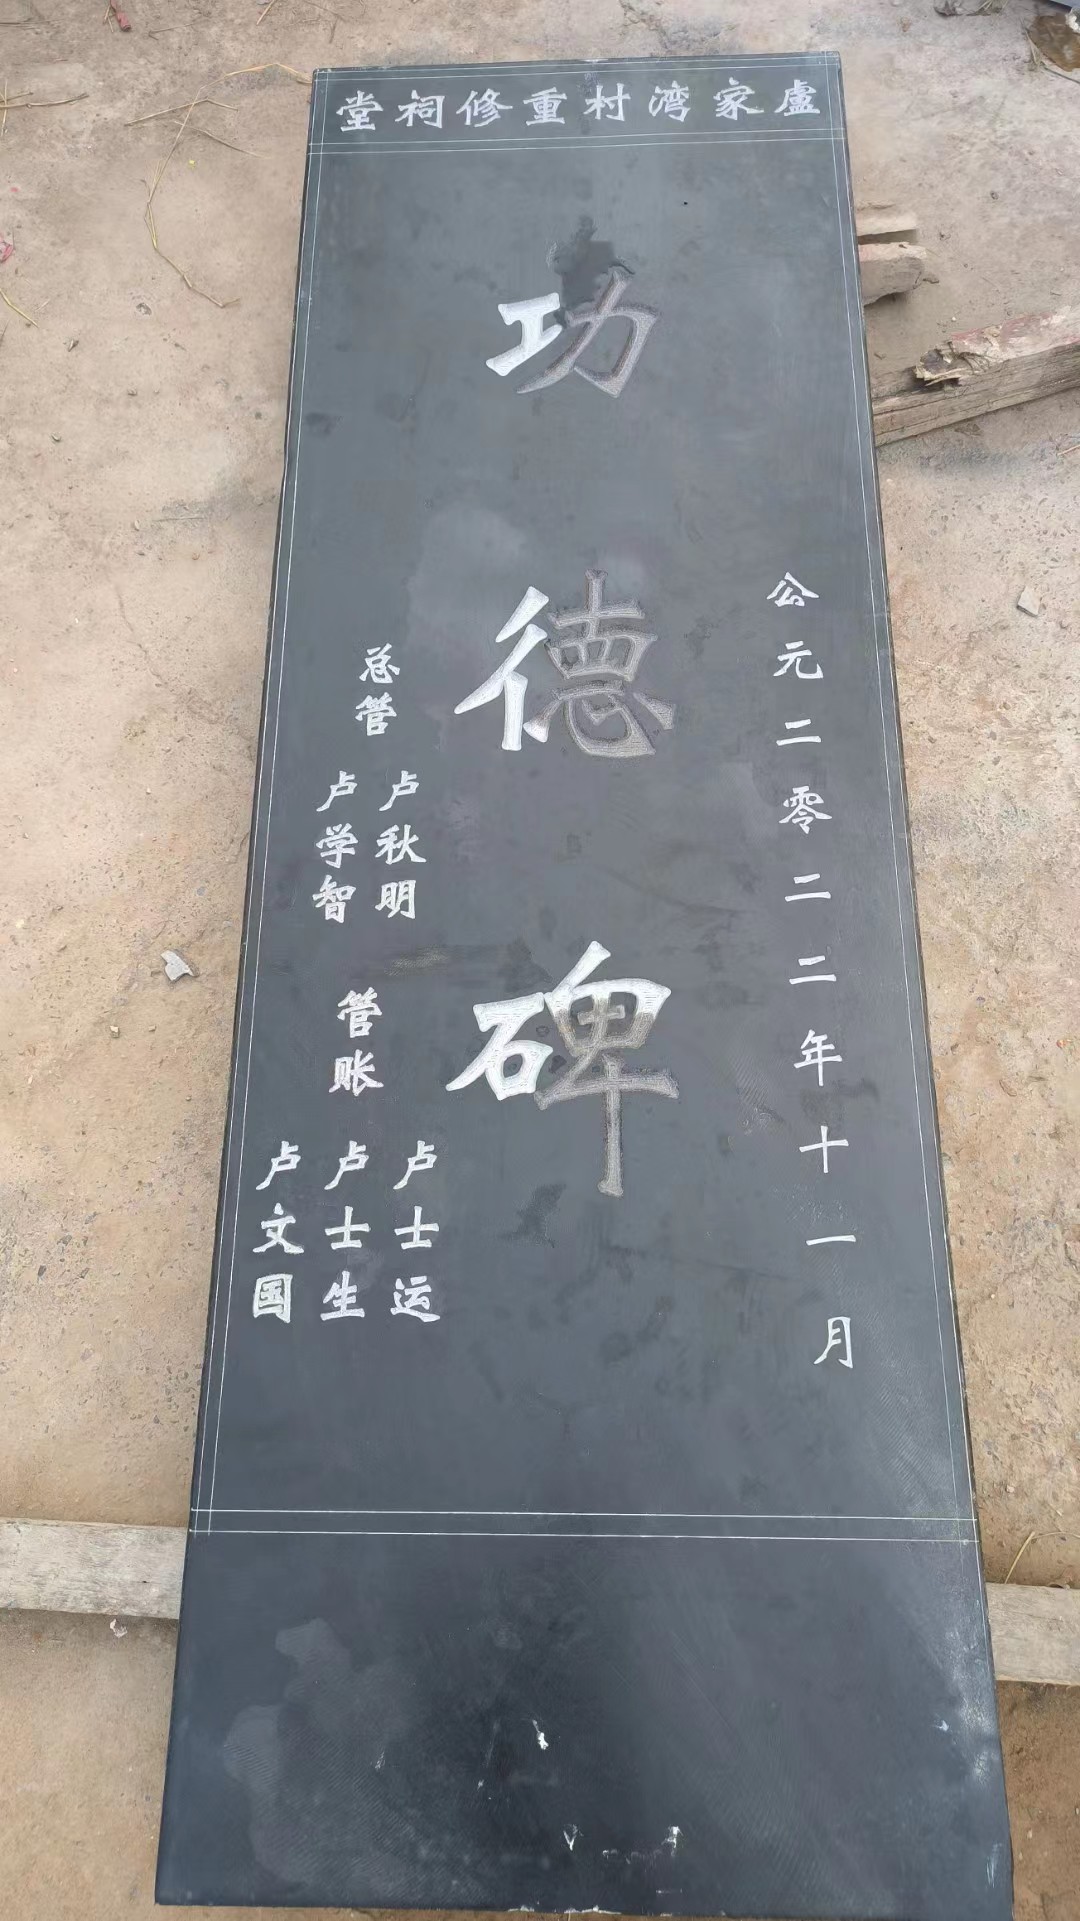 盧家湾村重修祠堂
公元二零二二年十一月
功德碑
总管
卢秋明
卢学智
管账
卢士运
卢士生
卢文国